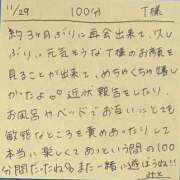 11/29 100分 T様
約3ヶ月ぶりに再会出来て、久し
ぶりに元気そうなT様のお顔を
見ることが出来て、めちゃくちゃ嬉し
かったよ 近が報告をしたり、
お風呂やベッドでお互いにとても
敏感なところを責めあったりして
本当に楽しくてあっという間の100
分間だったね また一緒に遊ぼうね!!
みと